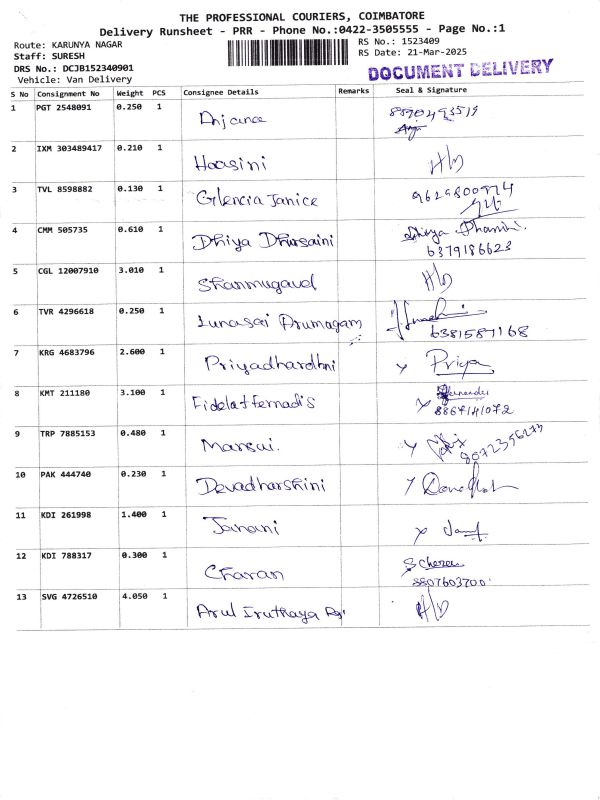 THE PROFESSIONAL COURIERS, COIMBATORE
Delivery Runsheet - PRR - Phone No.:0422-3505555 - Page No.:1
Route: KARUNYA NAGAR
Staff: SURESH
DRS No.: DCJB152340901
Vehicle: Van Delivery
RS No.: 1523409
RS Date: 21-Mar-2025
DOCUMENT DELIVERY
S No Consignment No Weight PCS Consignee Details Remarks Seal & Signature
1 PGT 2548091 0.250 1 Anjana
2 IXM 303489417 0.210 1 Haasini H/D
3 TVL 8598882 0.130 1 Glencia Janice
4 CMM 505735 0.610 1 Dhiya Dharsaini
6379186623
5 CGL 12007910 3.010 1 Shanmugavel H/D
6 TVR 4296618 0.250 1 Arumagam
6381587168
7 KRG 4683796 2.600 1 Priyadhardhni Priya
8 KMT 211180 3.100 1
8867141072
9 TRP 7885153 0.480 1 Mansai.
10 PAK 444740 0.230 1 Devadharshini
11 KDI 261998 1.400 1 Janani
12 KDI 788317 0.300 1 Charan
8807603700
13 SVG 4726510 4.050 1 Arul Iruthaya H/D